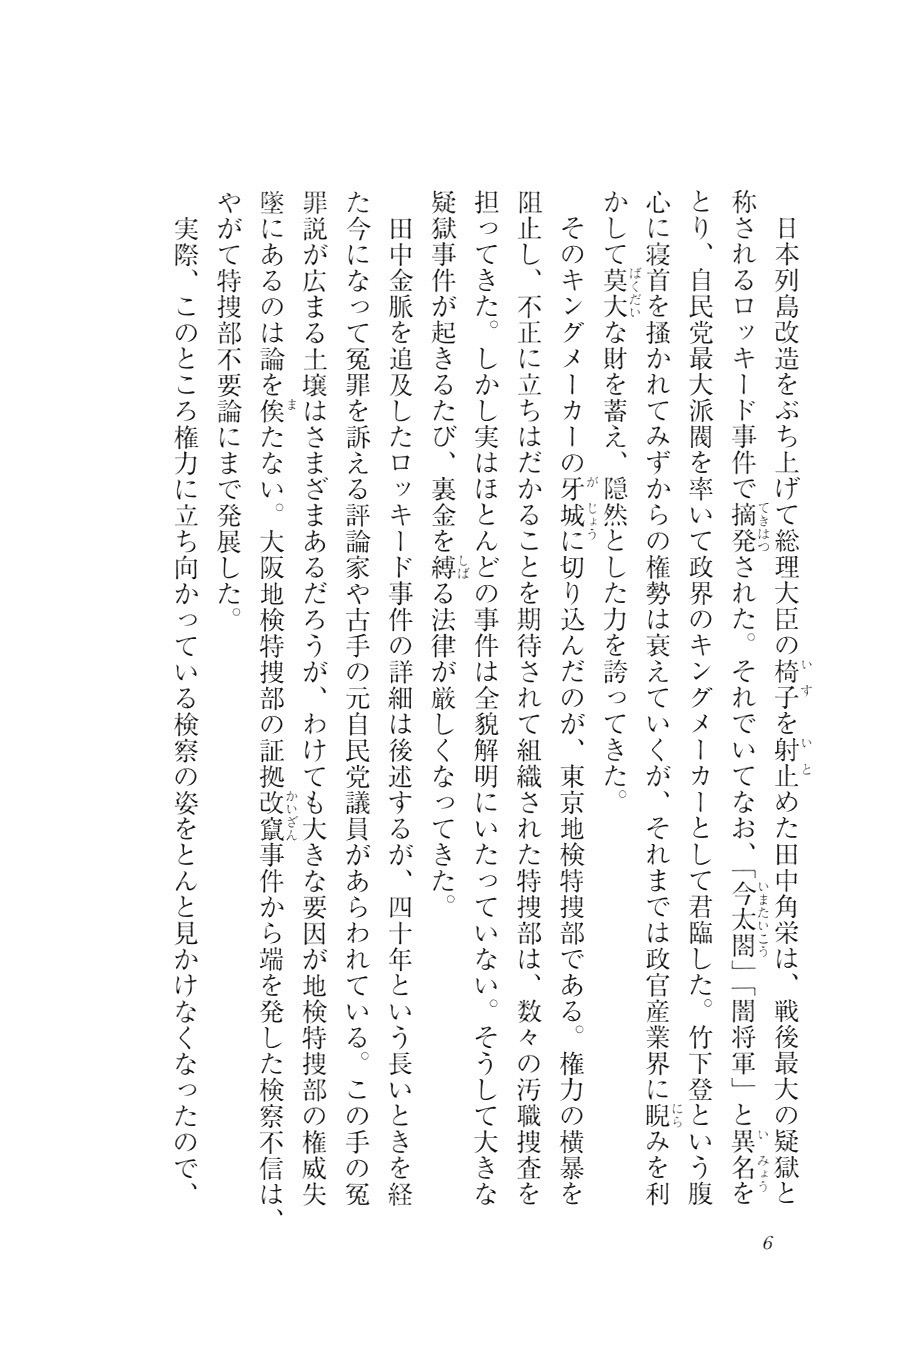 日本列島改造をぶち上げて総理大臣の椅子を射止めた田中角栄は、戦後最大の疑獄と
称されるロッキード事件で摘発された。それでいてなお、「今太閤」「闇将軍」と異名を
とり、自民党最大派閥を率いて政界のキングメーカーとして君臨した。竹下登という腹
心に寝首を掻かれてみずからの権勢は衰えていくが、それまでは政官産業界に睨みを利
かして莫大な財を蓄え、隠然とした力を誇ってきた。
そのキングメーカーの牙城に切り込んだのが、東京地検特捜部である。権力の横暴を
阻止し、不正に立ちはだかることを期待されて組織された特捜部は、数々の汚職捜査を
担ってきた。しかし実はほとんどの事件は全貌解明にいたっていない。そうして大きな
疑獄事件が起きるたび、裏金を縛る法律が厳しくなってきた。
田中金脈を追及したロッキード事件の詳細は後述するが、四十年という長いときを経
た今になって冤罪を訴える評論家や古手の元自民党議員があらわれている。この手の冤
罪説が広まる土壌はさまざまあるだろうが、わけても大きな要因が地検特捜部の権威失
墜にあるのは論を俟たない。大阪地検特捜部の証拠改竄事件から端を発した検察不信は、
やがて特捜部不要論にまで発展した。
実際、このところ権力に立ち向かっている検察の姿をとんと見かけなくなったので、
6